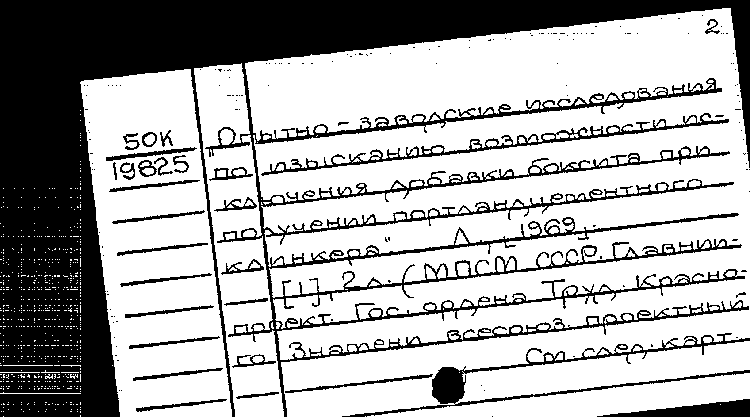 2
50К
19625
"Опытно-заводские исследования
по изысканию возможности ис-
ключения добавки боксита при
получении портландцементного
клинкера" Л., [1969].
[1], 2 л. (МПСМ СССР. Главнии-
проект. Гос. ордена Труд. Красно-
го Знамени всесоюз. проектный
См. след. карт.